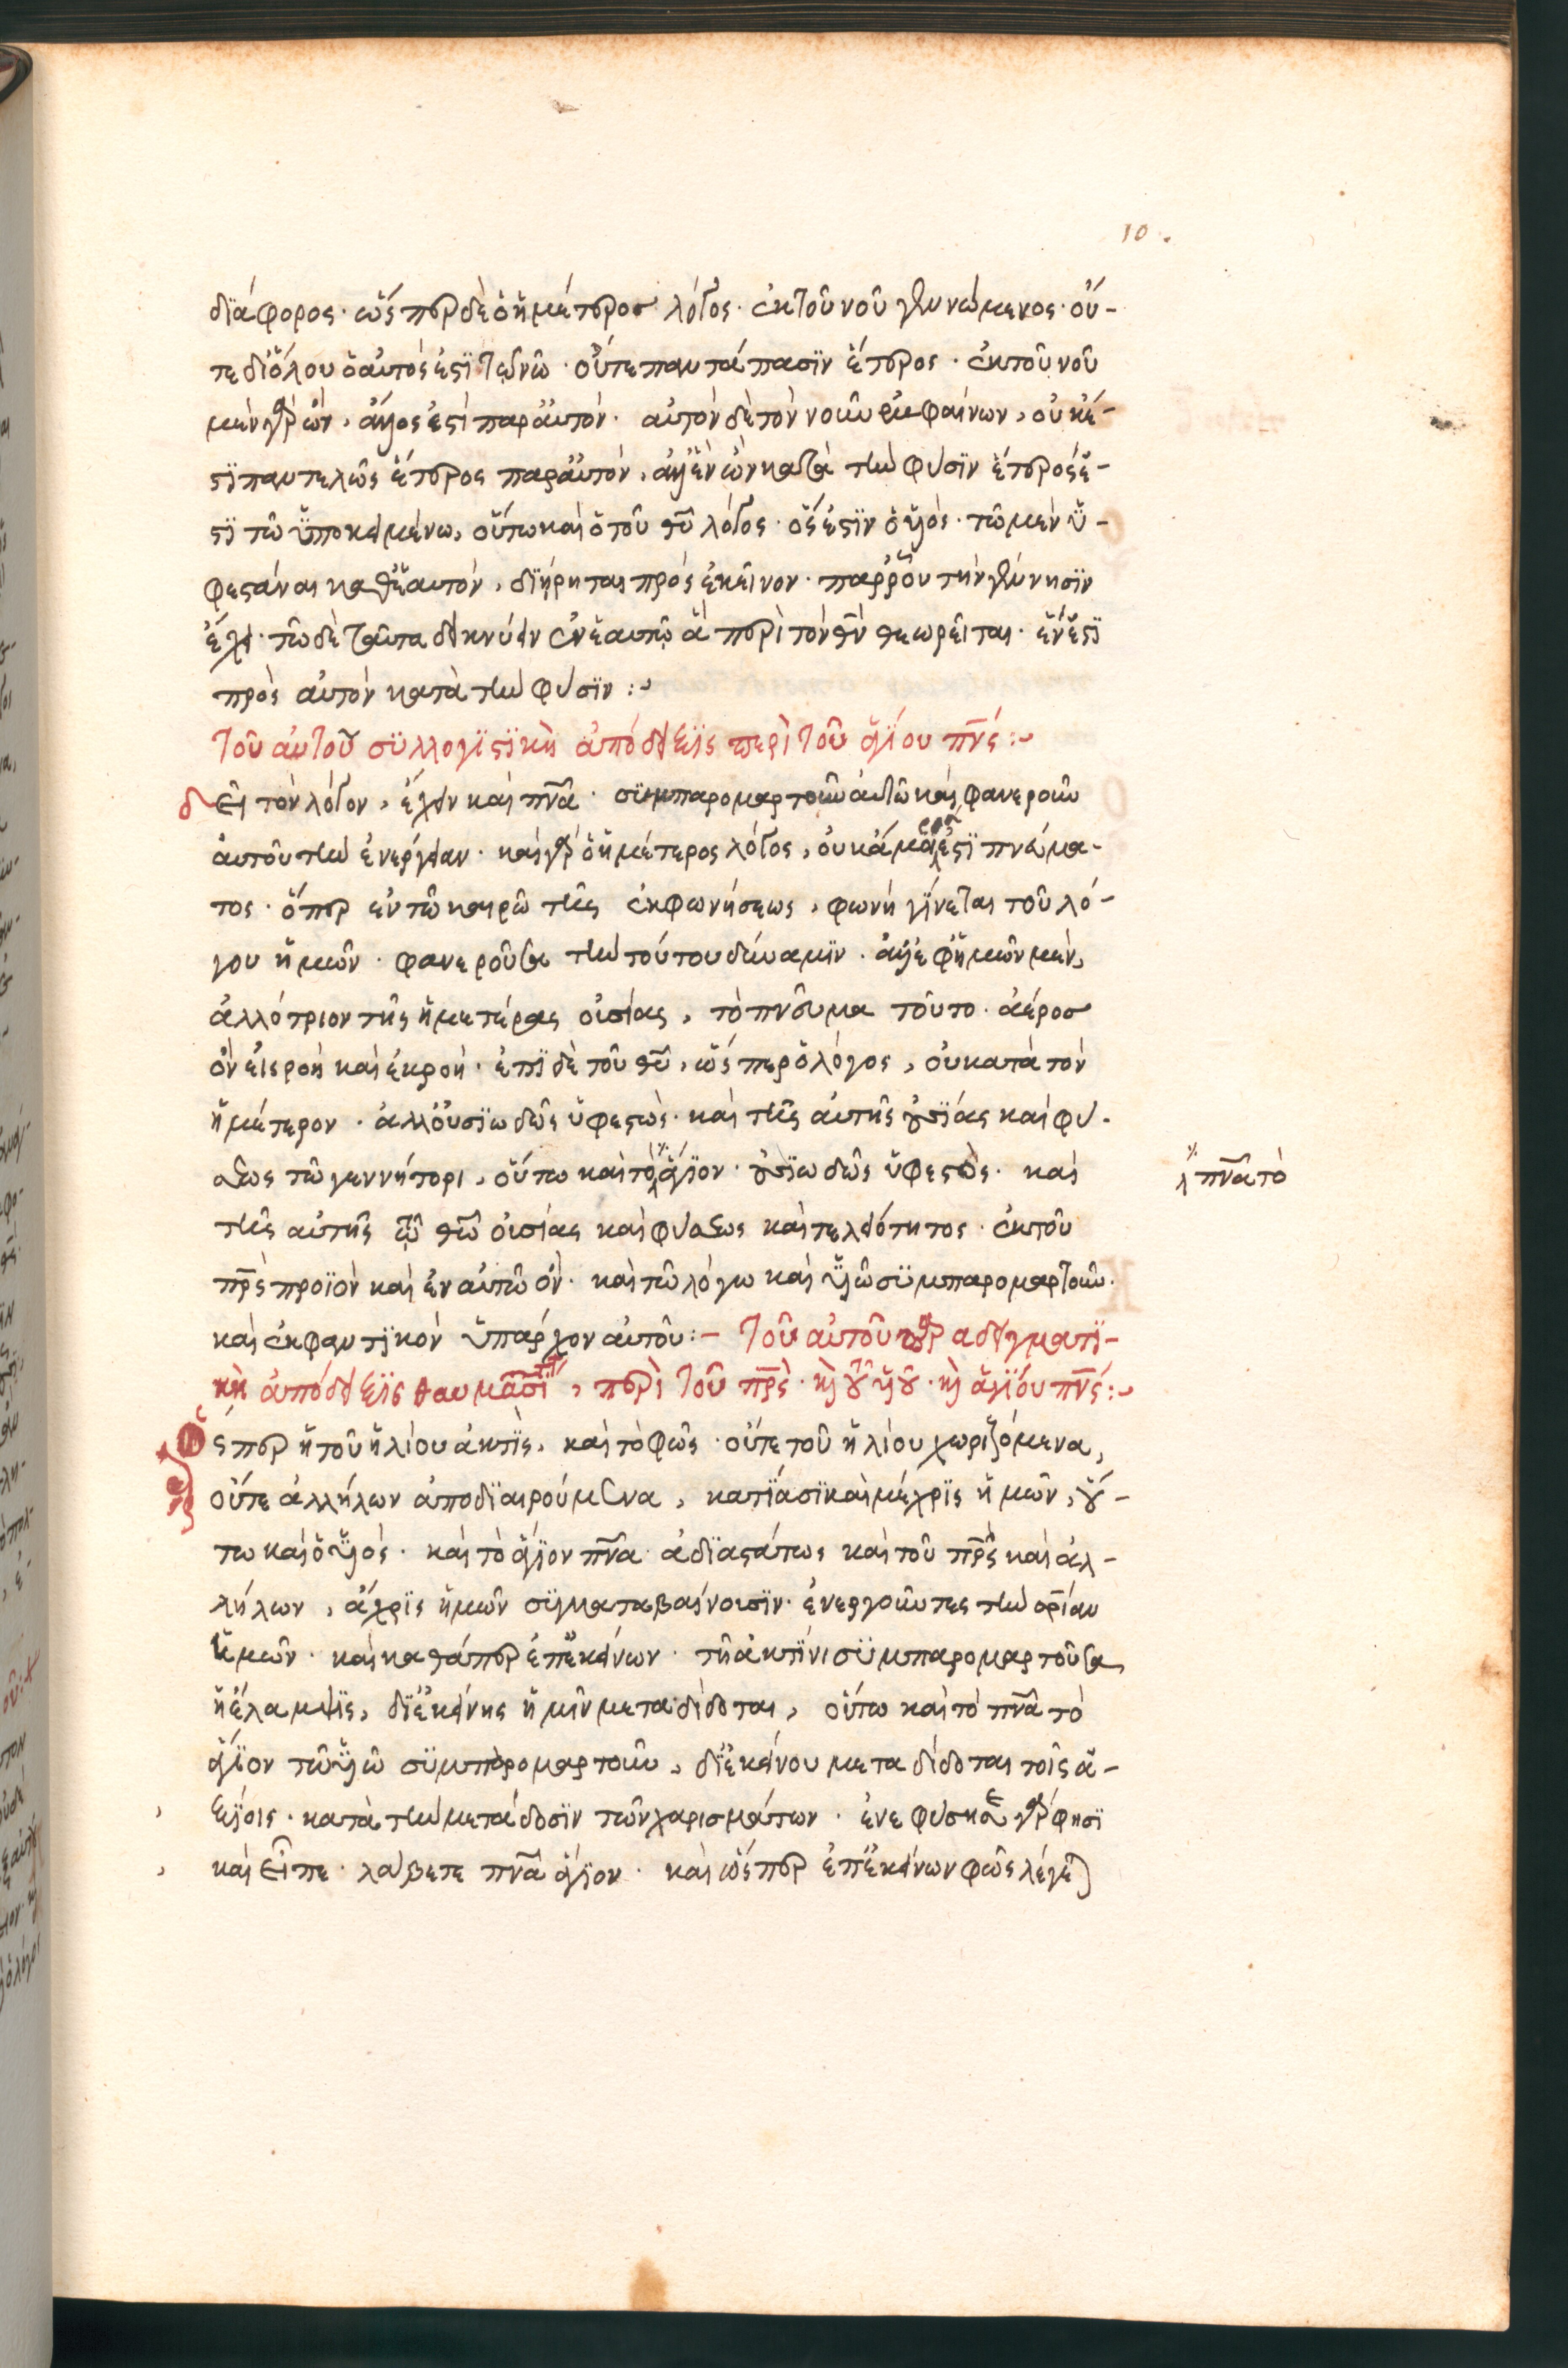 10.
διάφορος· ὥσπερ δὲ ὁ ἡμέτερος λόγος· ἐκ τοῦ νοῦ γεννώμενος· οὔ-
τε διόλου ὁ αὐτός ἐστι τῷ νῷ· οὔτε παντάπασιν ἕτερος· ἐκ τοῦ νοῦ
μὲν γὰρ ὢν, ἄλλος ἐστὶ παρ' αὐτόν· αὐτὸν δὲ τὸν νοῦν ἐμφαίνων, οὐκέ-
στι παντελῶς ἕτερος παρ' αὐτόν, ἀλλ' ἓν ὢν κατὰ τὴν φύσιν ἕτερός ἐ-
στι τῷ ὑποκειμένω, οὕτω καὶ ὁ τοῦ θῦ λόγος· ὅς ἐστιν ὁ υἱός· τῶ μὲν ὑ-
φεστάναι καθ' ἑαυτόν, διήρηται πρὸς ἐκεῖνον· παρ' οὗ τὴν γέννησιν
ἔχει· τῶ δὲ ταῦτα δεικνύειν ἐν ἑαυτῷ ἃ περὶ τὸν θν θεωρεῖται· ἕν ἐστι
πρὸς αὐτὸν κατὰ τὴν φύσιν :~
Τοῦ αὐτοῦ συλλογιστικὴ ἀπόδειξις περὶ τοῦ ἁγίου πνς :~
δεῖ τὸν λόγον, ἔχειν καὶ πνα· συμπαρομαρτοῦν αὐτῶ καὶ φανεροῦν
αὐτοῦ τὴν ἐνέργειαν· καὶ γὰρ ὁ ἡμέτερος λόγος, οὐκ ἄμοιρός ἐστι πνεύμα-
τος· ὅπερ ἐν τῶ καιρῶ τῆς ἐκφωνήσεως, φωνὴ γίνεται τοῦ λό-
γου ἡμῶν· φανεροῦσα τὴν τούτου δύναμιν· ἀλλ' ἐφ' ἡμῶν μὲν,
ἀλλότριον τῆς ἡμετέρας οὐσίας, τὸ πνεῦμα τοῦτο· ἀέρος
ὂν εἰσροὴ καὶ ἐκροή· ἐπὶ δὲ τοῦ θῦ, ὥσπερ ὁ λόγος, οὐ κατὰ τὸν
ἡμέτερον· ἀλλ' οὐσιωδῶς ὑφεστώς· καὶ τῆς αὐτῆς οὐσίας καὶ φύ-
σεως τῶ γεννήτορι, οὕτω καὶ τὸ ἅγιον· οὐσιωδῶς ὑφεστὸς· καὶ
πνα τὸ
τῆς αὐτῆς τῷ θῶ οὐσίας καὶ φύσεως καὶ τελειότητος· ἐκ τοῦ
πρς προϊὸν καὶ ἐν αὐτῶ ὄν· καὶ τῶ λόγω καὶ υἱῶ συμπαρομαρτοῦν·
καὶ ἐκφαντικὸν ὑπάρχον αὐτοῦ :- Τοῦ αὐτοῦ παραδειγματι-
κὴ ἀπόδειξις θαυμασι, περὶ τοῦ πρς· καὶ τοῦ υἱοῦ· καὶ ἁγίου πνς :~
Ὥσπερ ἡ τοῦ ἡλίου ἀκτὶς, καὶ τὸ φῶς· οὔτε τοῦ ἡλίου χωριζόμενα,
οὔτε ἀλλήλων ἀποδιαιρούμενα, κατίασι καὶ μέχρις ἡμῶν, οὕ-
τω καὶ ὁ υἱός· καὶ τὸ ἅγιον πνα· ἀδιαστάτως καὶ τοῦ πρς καὶ ἀλ-
λήλων, ἄχρις ἡμῶν συγκαταβαίνουσιν· ἐνεργοῦντες τὴν σρίαν
ἡμῶν· καὶ καθάπερ ἐπ' ἐκείνων· τῆ ἀκτῖνι συμπαρομαρτοῦσα
ἡ ἔλαμψις, δι' ἐκείνης ἡμῖν μεταδίδοται, οὕτω καὶ τὸ πνα τὸ
ἅγιον τῶ υἱῶ συμπαρομαρτοῦν, δι' ἐκείνου μεταδίδοται τοῖς ἀ-
ξίοις· κατὰ τὴν μετάδοσιν τῶν χαρισμάτων· ἐνεφύσησε γάρ φησι
καὶ εἶπε· λάβετε πνα ἅγιον· καὶ ὥσπερ ἐπ' ἐκείνων φῶς λέγεται